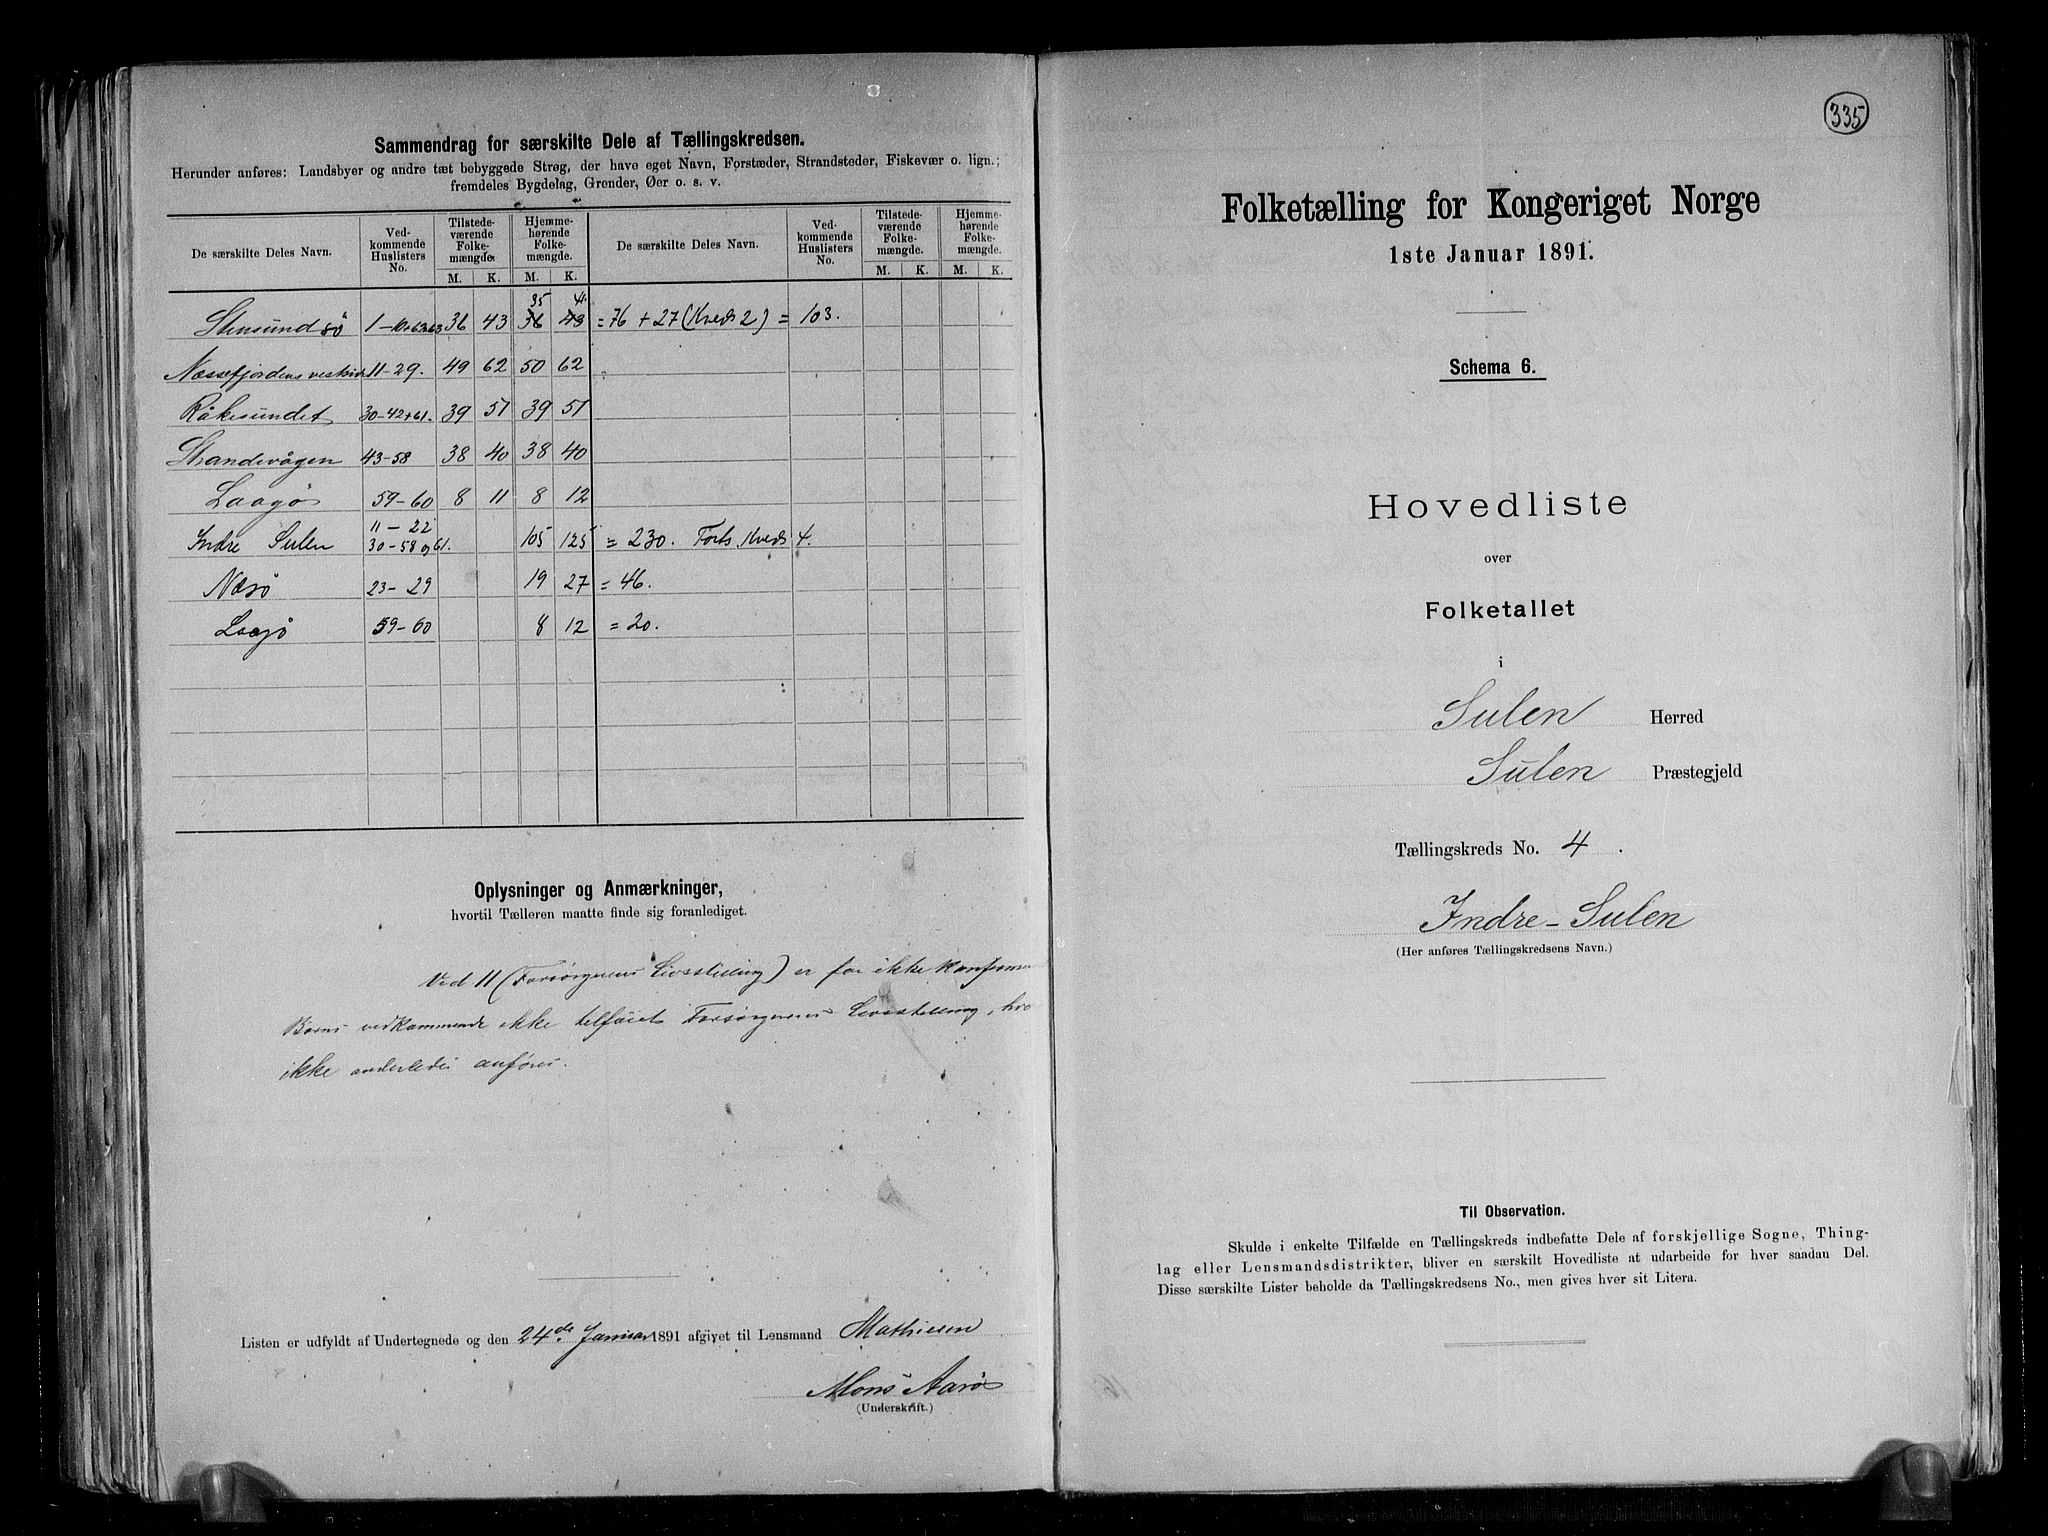 Sammendrag for særskilte Dele af Tællingskredsen.
Herunder anføres: Landsbyer og andre tæt bebyggede Strøg, der have eget Navn, Forstæder, Strandsteder, Fiskevær o. lign.;
fremdeles Bygdelag, Grender, Øer o. s. v.
De særskilte Deles Navn. Ved-kommende Huslisters No. Tilstede-værende Folke-mængde. Hjemme-hørende Folke-mængde. De særskilte Deles Navn. Ved-kommende Huslisters No. Tilstede-værende Folke-mængde. Hjemme-hørende Folke-mængde.
M. K. M. K. M. K. M. K.
35 41
Stensundsø 1-10+62 63 36 43 36 43 = 76 + 27 (Kreds 2) = 103.
Næssefjordens vestside 11-29. 49 62 50 62
Råkesundet 30-42+61. 39 51 39 51
Strandevågen 43-58 38 40 38 40
Laagø 59-60 8 11 8 12
11-22
Indre Sulen 30-58 og 61. 105 125 = 230. Forts. Kreds 4.
Næsø 23-29 19 27 = 46.
Laagø 59-60 8 12 = 20.
Oplysninger og Anmærkninger,
hvortil Tælleren maatte finde sig foranlediget.
Ved 11 (Forsørgerens Livsstilling) er for ikke
Børns vedkommende ikke tilføiet Forsørgerens Livsstilling, hvo
ikke anderledes anføres.
Listen er udfyldt af Undertegnede og den 24de Januar 1891 afgivet til Lensmand Mathiesen
Mons Aarø
(Underskrift.)
335
Folketælling for Kongeriget Norge
1ste Januar 1891.
Schema 6.
Hovedliste
over
Folketallet
i
Sulen Herred
Sulen Præstegjeld
Tællingskreds No. 4.
Indre-Sulen
(Her anføres Tællingskredsens Navn.)
Til Observation.
Skulde i enkelte Tilfælde en Tællingskreds indbefatte Dele af forskjellige Sogne, Thing-
lag eller Lensmandsdistrikter, bliver en særskilt Hovedliste at udarbeide for hver saadan Del.
Disse særskilte Lister beholde da Tællingskredsens No., men gives hver sit Litera.